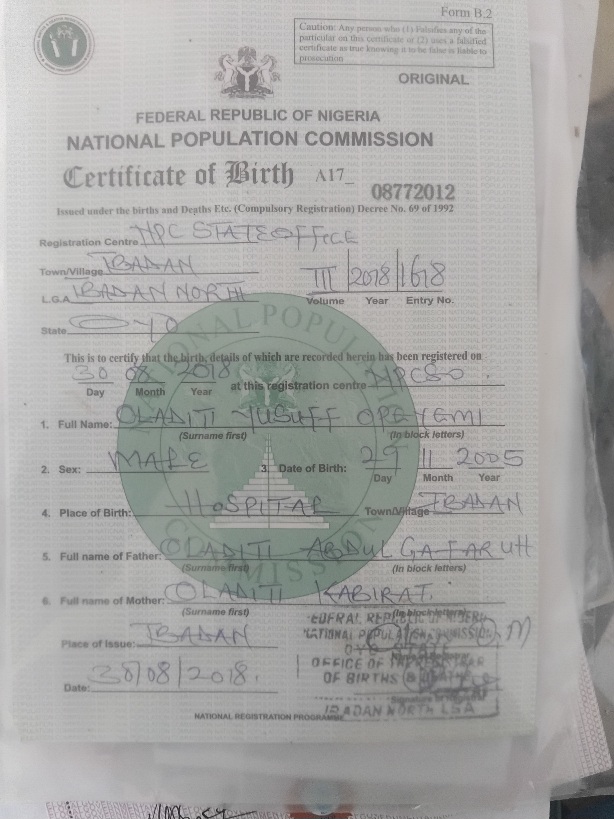 Form B.2
Caution: Any person who (1) Falsifies any of the
particular on this certificate or (2) uses a falsified
certificate as true knowing it to be false is liable to
prosecution
ORIGINAL
FEDERAL REPUBLIC OF NIGERIA
NATIONAL POPULATION COMMISSION
Certificate of Birth A17_ 08772012
Issued under the births and Deaths Etc. (Compulsory Registration) Decree No. 69 of 1992
Registration Centre NPC STATE OFFICE
Town/Village IBADAN
III 2018 1618
L.G.A IBADAN NORTH
Volume Year Entry No.
State OYO
This is to certify that the birth, details of which are recorded herein has been registered on
30 08 2018 at this registration centre NPCSO
Day Month Year
1. Full Name: OLADITI YUSUFF OPEYEMI
(Surname first) (In block letters)
2. Sex: MALE 3. Date of Birth: 29 11 2005
Day Month Year
4. Place of Birth: HOSPITAL Town/Village IBADAN
5. Full name of Father: OLADITI ABDUL GAFARU
(Surname first) (In block letters)
6. Full name of Mother: OLADITI KABIRAT
(Surname first) (In block letters)
Place of Issue: IBADAN
NATIONAL POPULATION COMMISSION
OYO STATE
OFFICE OF
OF BIRTHS &
Date: 30/08/2018.
IBADAN NORTH LGA
NATIONAL REGISTRATION PROGRAMME
NATIONAL POPULATION COMMISSION